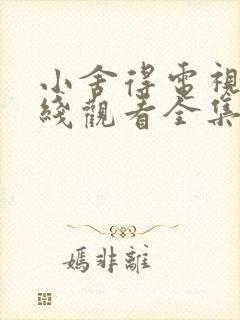 小舍得電視
綫觀看全集
嫣非離